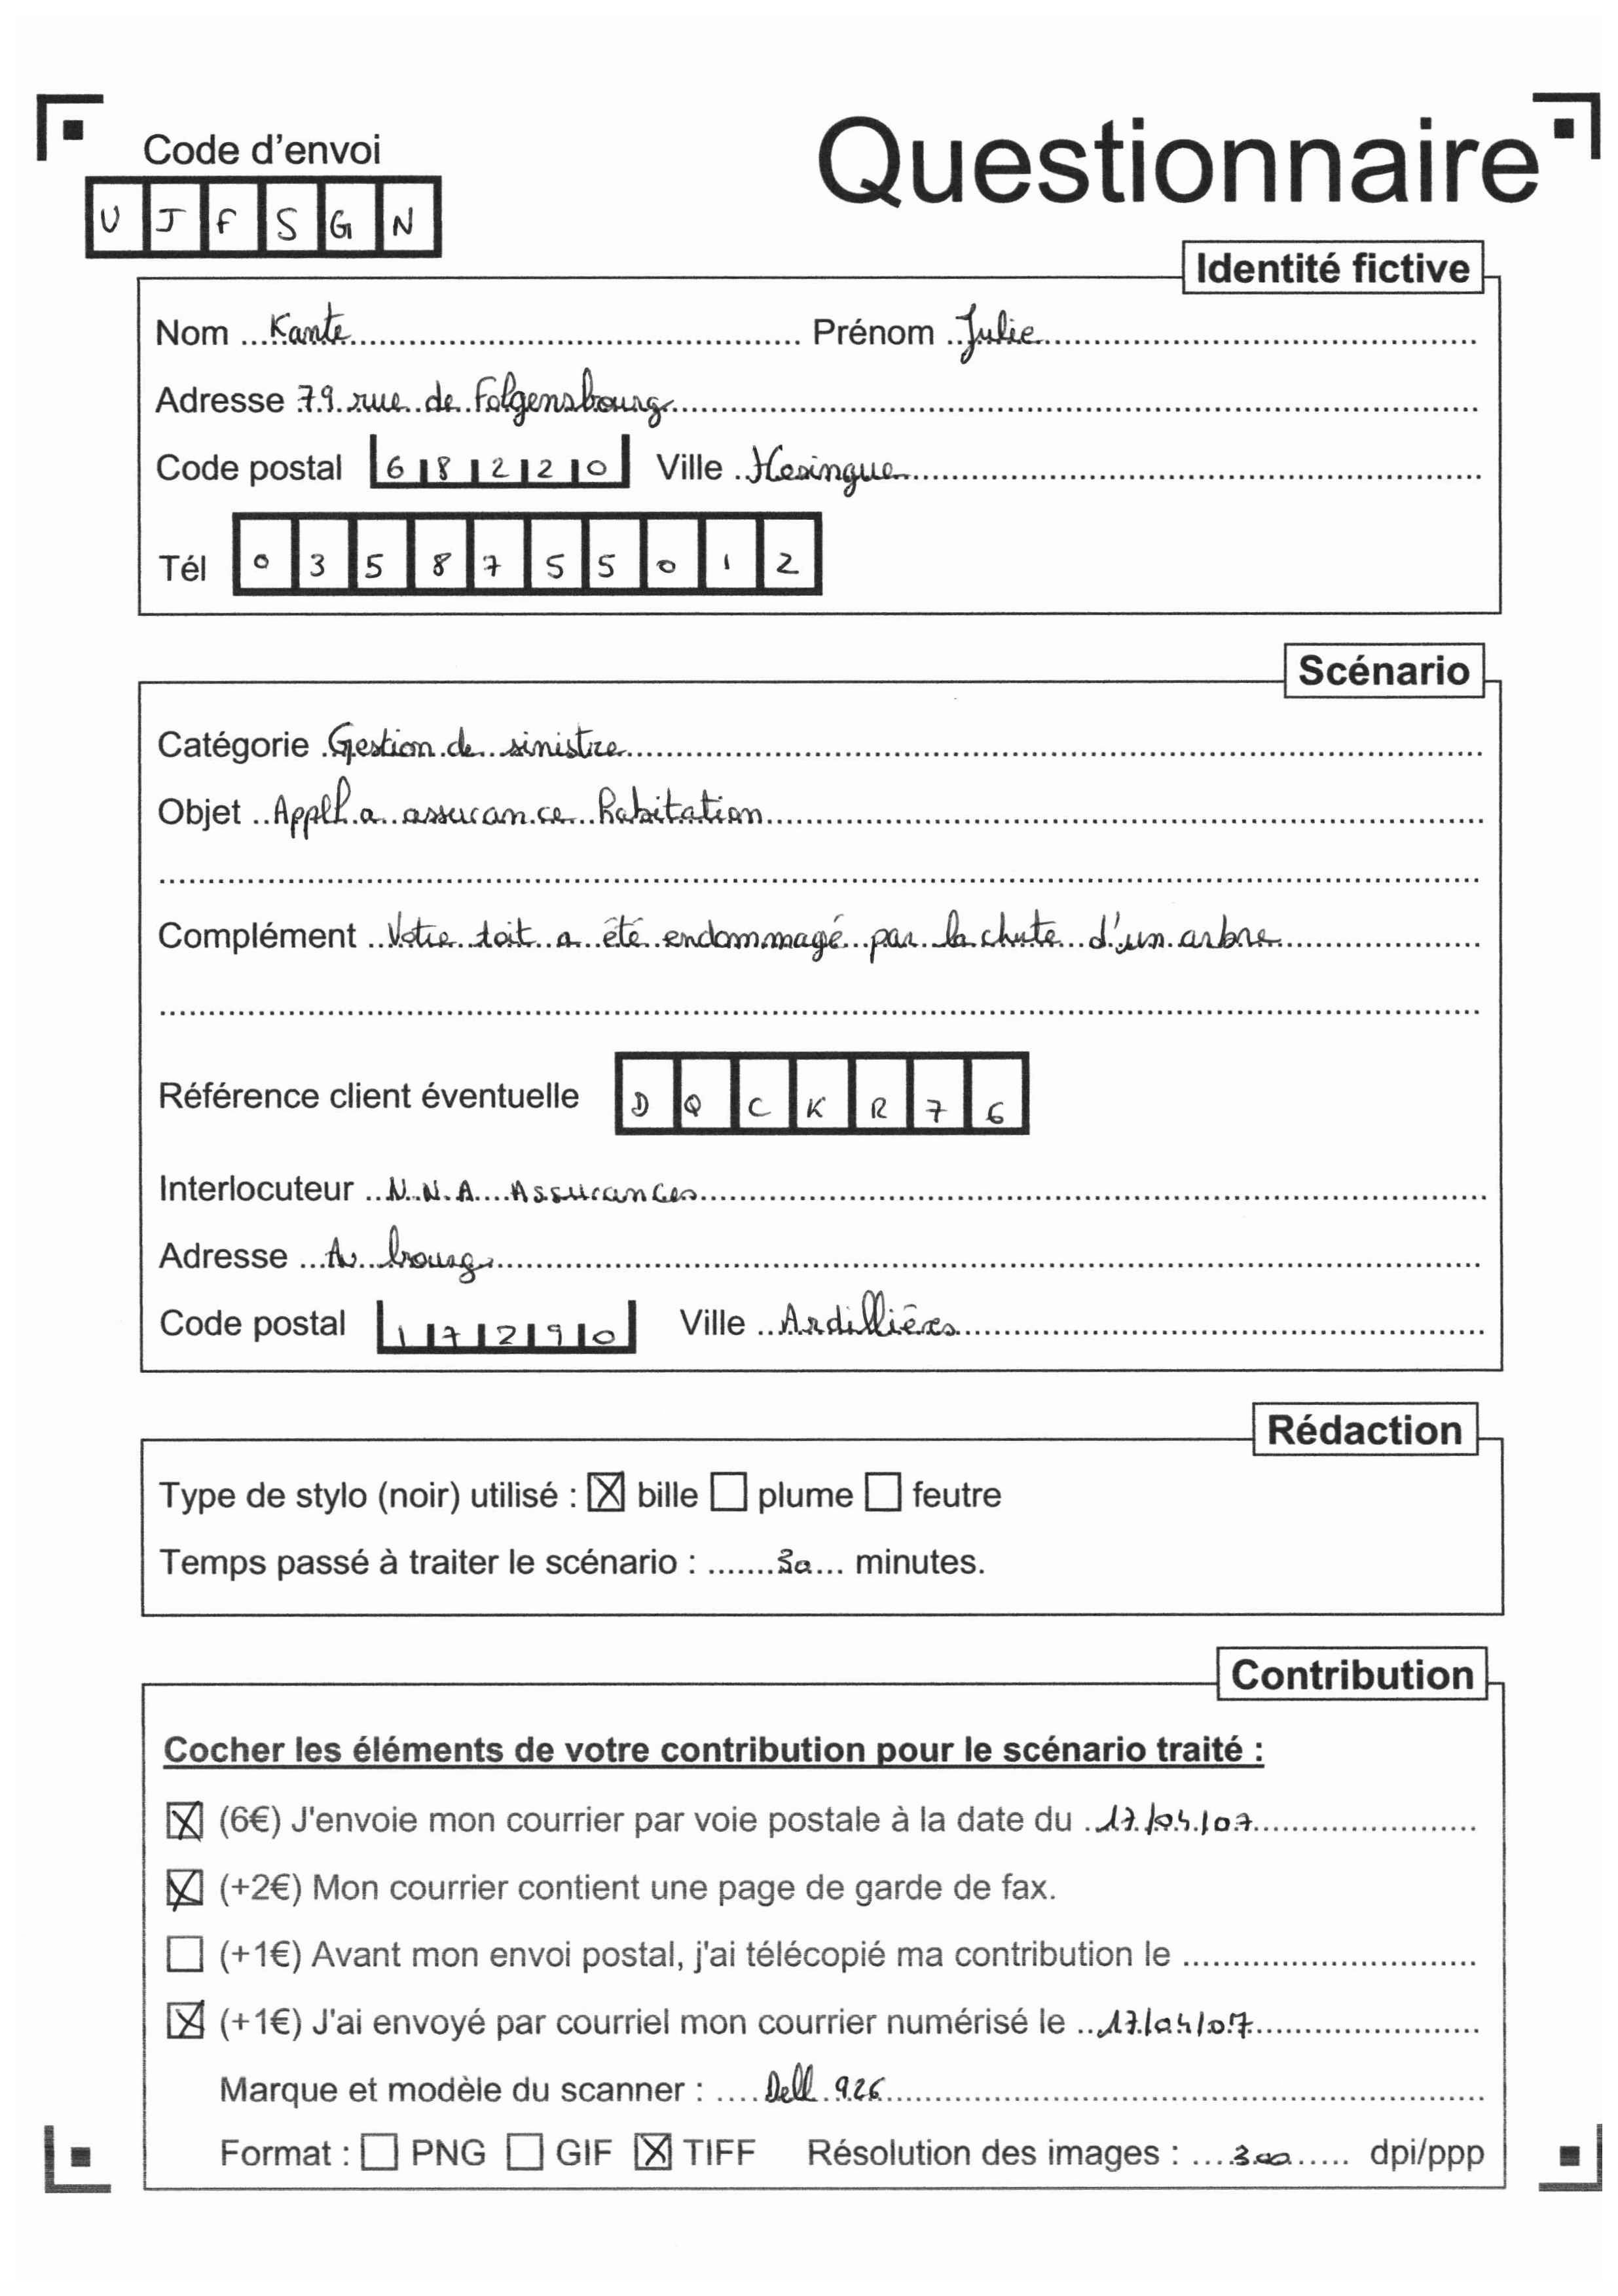 Code d'envoi
Questionnaire
U J F S G N
Identité fictive
Nom Kante Prénom Julie
Adresse 79 rue de Folgensbourg
Code postal 68220 Ville Hesingue
Tél 0358755012
Scénario
Catégorie Gestion de sinistre
Objet a assurance habitation
Complément Votre toit a été endommagé par la chute d'un arbre
Référence client éventuelle D Q C K R 7 6
Interlocuteur N.N.A Assurances
Adresse bourg
Code postal 17290 Ville Ardillières
Rédaction
Type de stylo (noir) utilisé : ☒ bille ☐ plume ☐ feutre
Temps passé à traiter le scénario : 30 minutes.
Contribution
Cocher les éléments de votre contribution pour le scénario traité :
☒ (6€) J'envoie mon courrier par voie postale à la date du 17/04/07
☒ (+2€) Mon courrier contient une page de garde de fax.
☐ (+1€) Avant mon envoi postal, j'ai télécopié ma contribution le
☒ (+1€) J'ai envoyé par courriel mon courrier numérisé le 17/04/07
Marque et modèle du scanner : Dell 926
Format : ☐ PNG ☐ GIF ☒ TIFF Résolution des images : 300 dpi/ppp